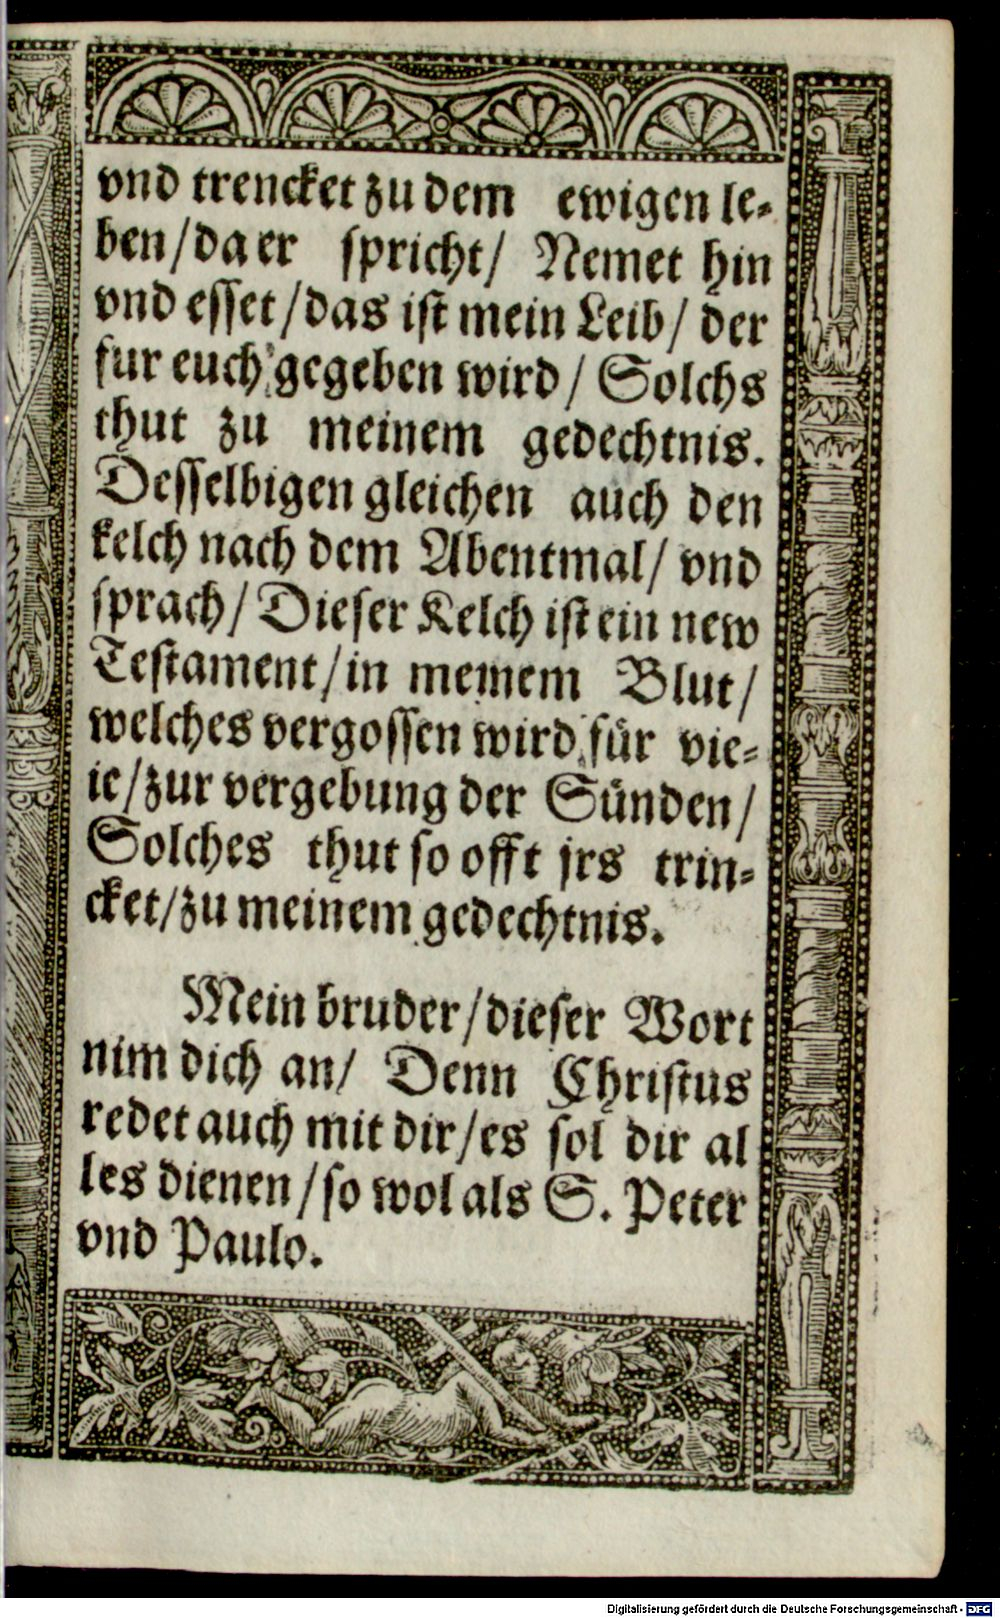 vnd trencket zu dem ewigen le-
ben/da er spricht/ Nemet hin
vnd esset/das ist mein Leib/ der
fur euch gegeben wird/ Solchs
thut zu meinem gedechtnis.
Desselbigen gleichen auch den
kelch nach dem Abentmal/ vnd
sprach/ Dieser Kelch ist ein new
Testament/in meinem Blut/
welches vergossen wird für vie-
le/zur vergebung der Sünden/
Solches thut so offt jrs trin-
cket/zu meinem gedechtnis.
Mein bruder/dieser Wort
nim dich an/ Denn Christus
redet auch mit dir/es sol dir al
les dienen/so wol als S. Peter
vnd Paulo.
Digitalisierung gefördert durch die Deutsche Forschungsgemeinschaft - DFG